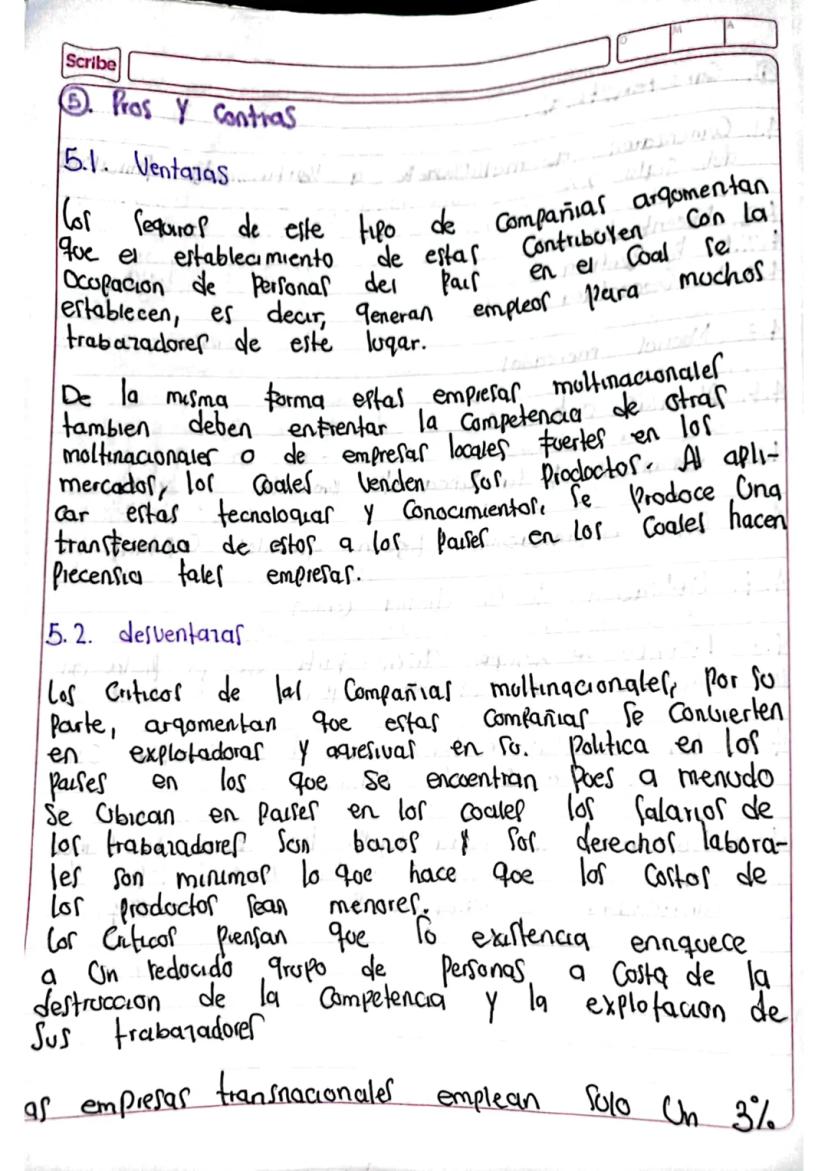 D M A
Scribe
5. Pros y Contras
5.1. Ventajas
Los seguros de este tipo de compañias argumentan
que el establecimiento de estas contribuyen con la
ocupacion de personas del pais en el coal se
establecen, es decir, generan empleos para muchos
trabazadores de este lugar.
De la misma forma estas empresas moltinacionales
tambien deben enfrentar la competencia de otras
moltinacionales o de empresas locales fuertes en los
mercados, los coales venden sos prodoctos. Al apli-
car estas tecnologias y conocimientos, se prodoce una
transferencia de estos a los paises en los coales hacen
precensia tales empresas.
5.2. desventazas
Los criticos de las compañias moltinacionales, por so
parte, argomentan qoe estas compañias se convierten
en explotadoras y agresivas en so. politica en los
paises en los qoe se encoentran poes a menudo
se ubican en paises en los coales los salarios de
los trabazadores son bazos y sos derechos labora-
les son minimos lo qoe hace qoe los costos de
los prodoctos sean menores.
Los criticos piensan que so existencia enriquece
a un redocido grupo de personas a costa de la
destruccion de la competencia y la explotacion de
sus trabazadores
as empresas transnacionales emplean solo un 3%